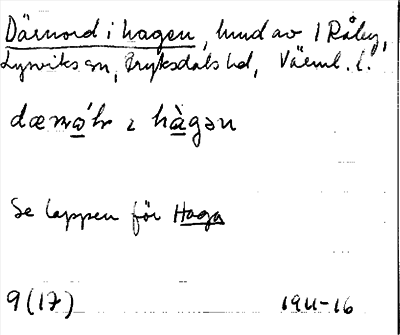 Därnord i hagen, hmd av 1 Råby,
Lysviks sn, Fryksdals hd, Värml. l.
dærnó̱ṟ ɩ hà̱gən
Se lappen för Haga
9(17) 1911-16